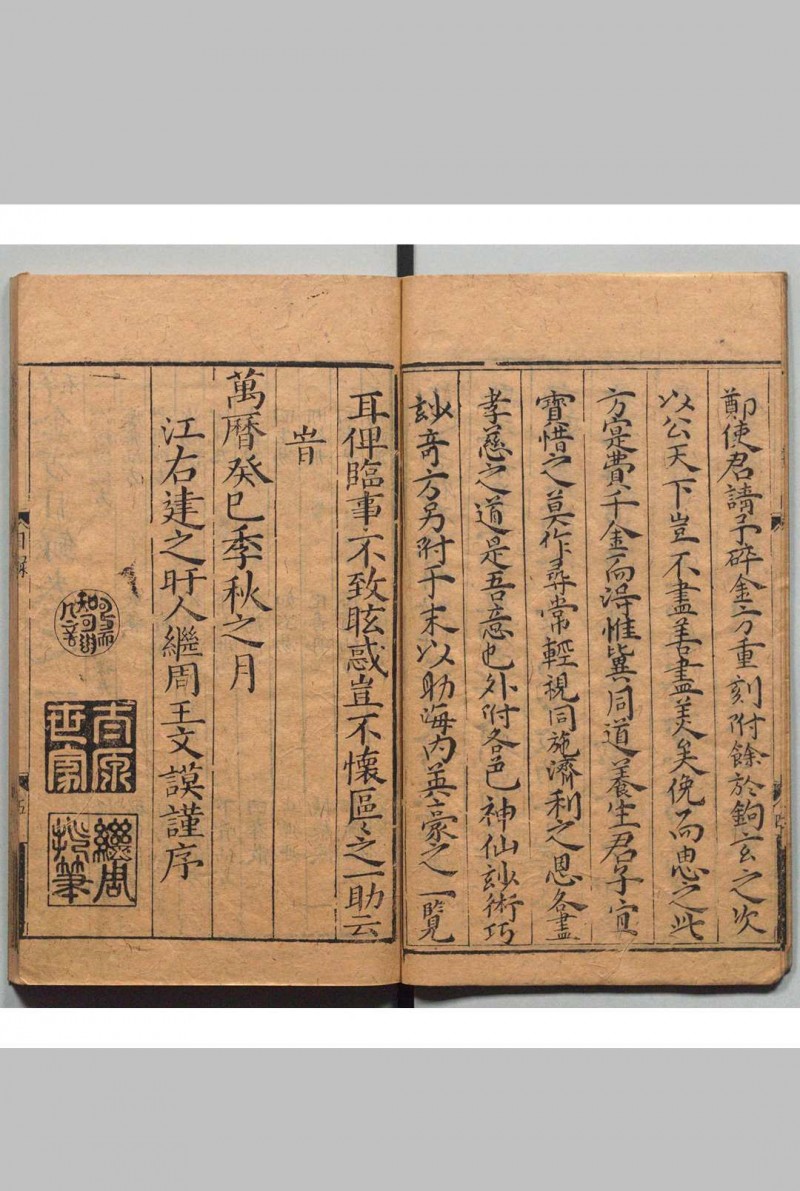 鄭使君請予碎金方重刻附餘於鉤玄之次
以公天下豈不盡善盡美矣俛而思之此
方寔費千金而得惟兾同道養生君子宜
寳惜之莫作尋常輕視同施濟利之恩各盡
孝慈之道是吾意也外附各色神仙玅術巧
玅竒方另附于末以助海内英豪之一覽
耳俾臨事不致眩惑豈不懷區〻之一助云
旹
萬曆癸巳季秋之月
江右建之旴人繼周王文謨謹序
世家
繼周